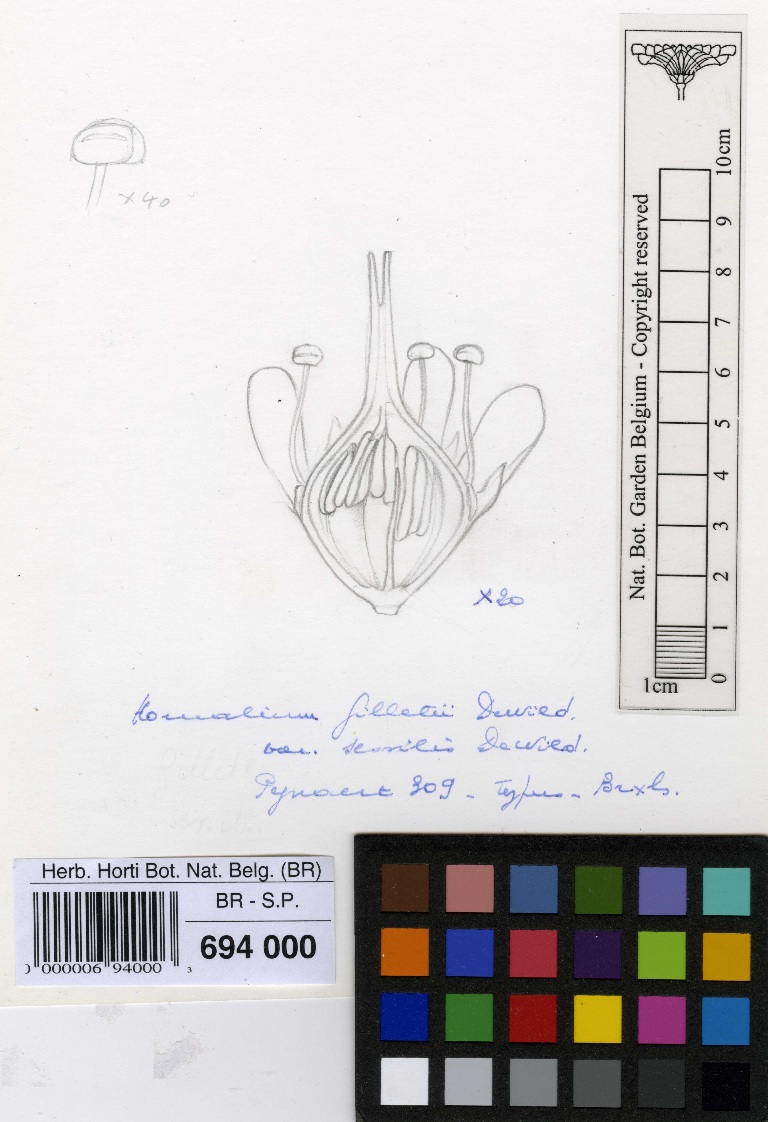 x40
x20
Homalium gilletii DeWild.
var. sessilis DeWild.
Pynaert 309 - Typus - Brxls.
Nat. Bot. Garden Belgium - Copyright reserved
10cm
9
8
7
6
5
4
3
2
1
0
1cm
Herb. Horti Bot. Nat. Belg. (BR)
BR - S.P.
694 000
000006 94000 3